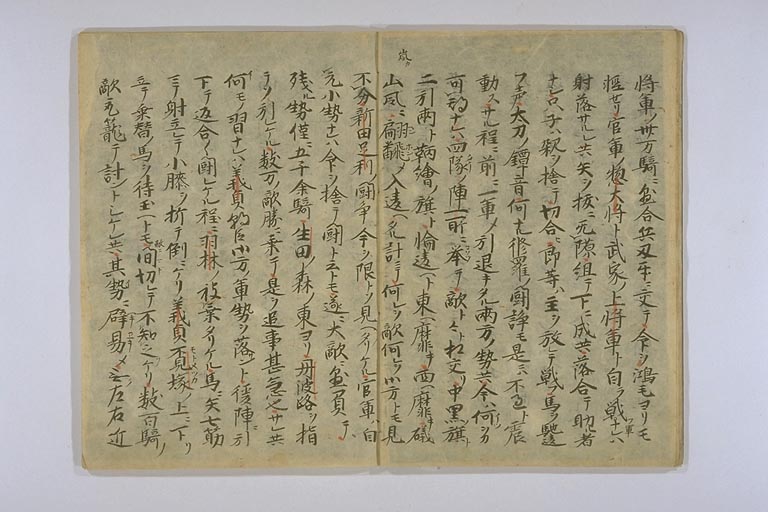 将軍ノ卅万騎ニ並合兵刃牢ニ交テ命ヲ鴻毛ヨリモ
軽セリ官軍ノ惣大将ト武家ノ上将軍ト自ラ戦ナハ
射落サルレ共矢ヲ抜ニ无隙組テ下ニ成共落合テ助ル者
ナシ只子ハ親ヲ捨テ切合郎等ハ主ヲ放テ戦フ馬ノ馳
フ声太刀ノ鐔音何ナル修羅ノ闘諍モ是ニハ不過ト震
動スサル程ニ前ニ一軍メ引退キタル両方ノ勢共今ハ何ヲカ
可期ナハ四隊ノ陣一所ニ挙テ敵ト々相交リ中黒旗
二引両ト鞆絵ノ旗ト輪違ト東ヘ靡キ西ヘ靡キ磯
山風ニ翩翻メ入違タル計ニテ何レヲ敵何レヲ御方トモ見
不分新田足利闘争今ヲ限トソ見ヘタリケル官軍ハ自
元小勢ナハ命ヲ捨テ闘ト云トモ遂ニ大敵ニ並負テ
残ル勢僅ニ五千余騎生田ノ森ノ東ヨリ丹波路ヲ指
テソ引ケル数万ノ敵勝ニ乗テ是ヲ追事甚急也サレ共
何モノ習ナハ義貞朝臣御方ノ軍勢ヲ落サント後陣ニ引
下テ返合々闘レケル程ニ羽林ノ被乗タリケル馬ニ矢七筋
ニテ射ラレテ小膝ヲ折テ倒ニケリ義貞求塚ノ上ニ下リ
立テ乗替ノ馬ヲ待玉ヘトモ間切レテ不知之ケリ数百騎ノ
敵取籠テ討ントシケレ共其勢ニ辟易メ左右近